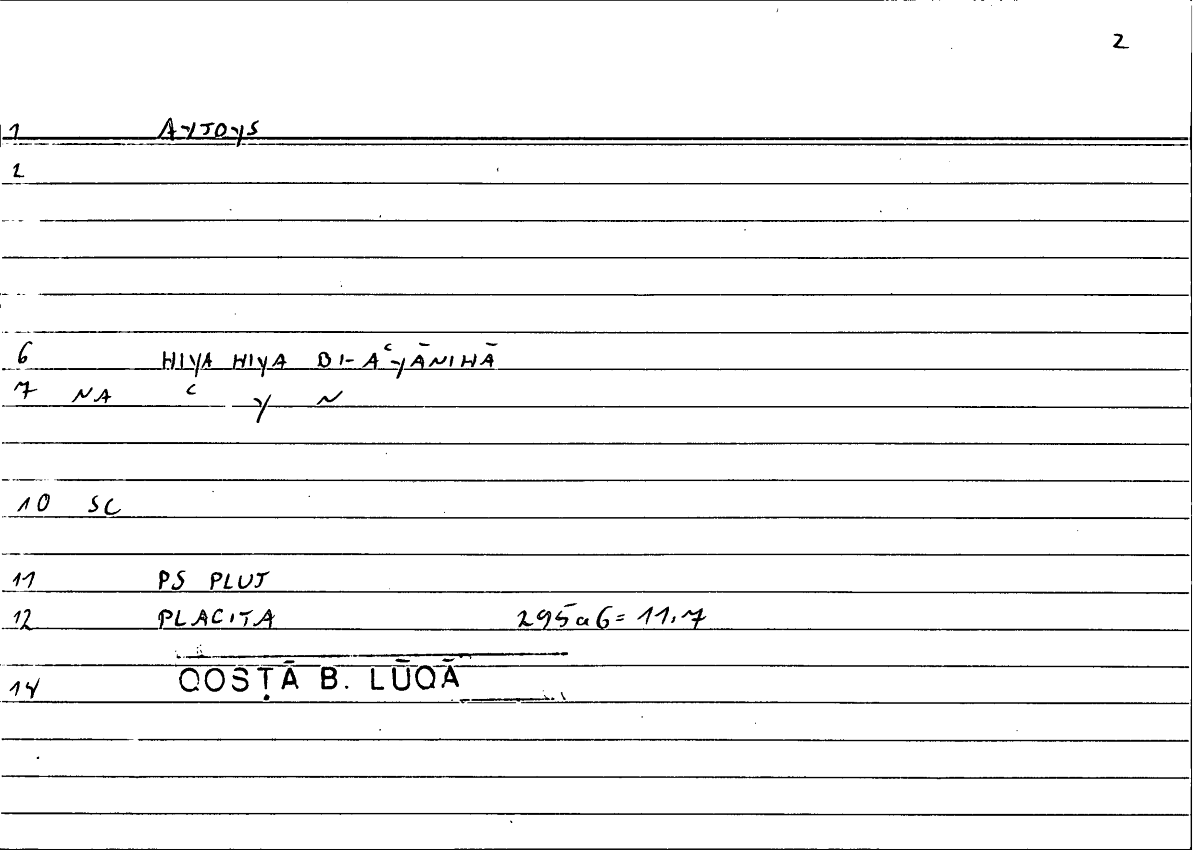 2
1 AYTOYS
2
6 HIYA HIYA BI-AʿYĀNIHĀ
7 NA ʿ Y N
10 SC
11 PS PLUT
12 PLACITA 295a6=11.7
14 QOSṬĀ B. LŪQĀ